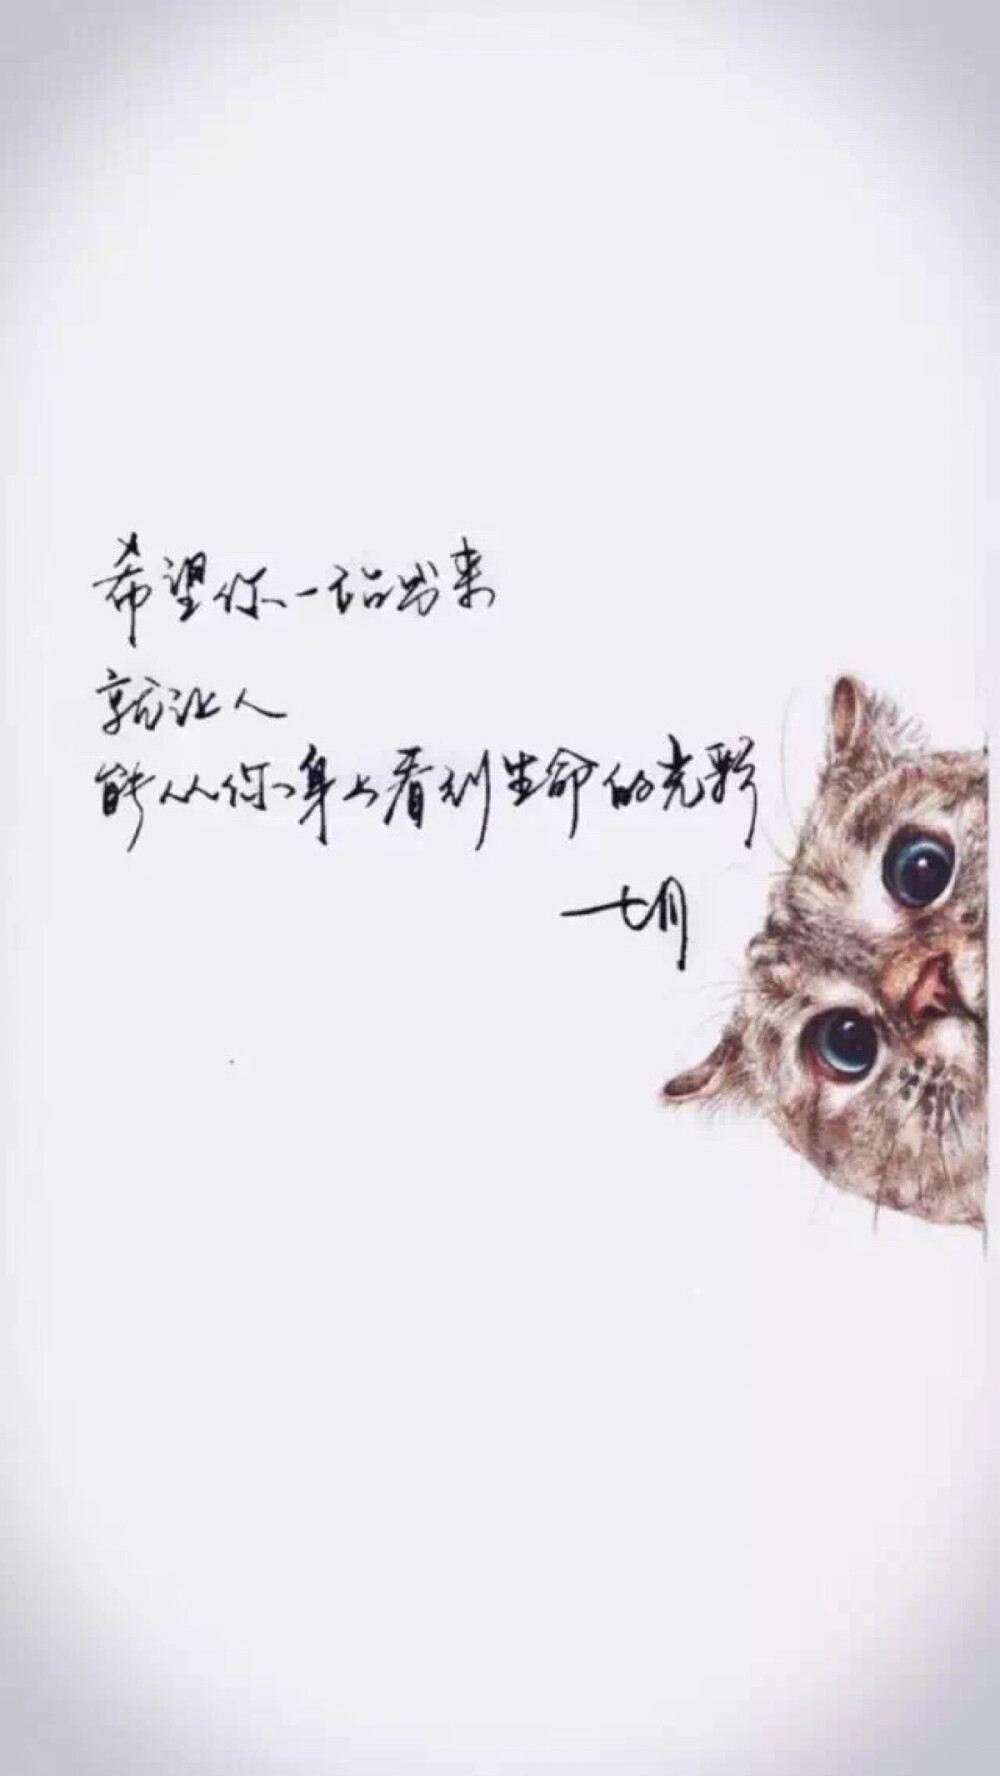 希望你一站出来
就让人
能从你身上看到生命的光彩
一七月